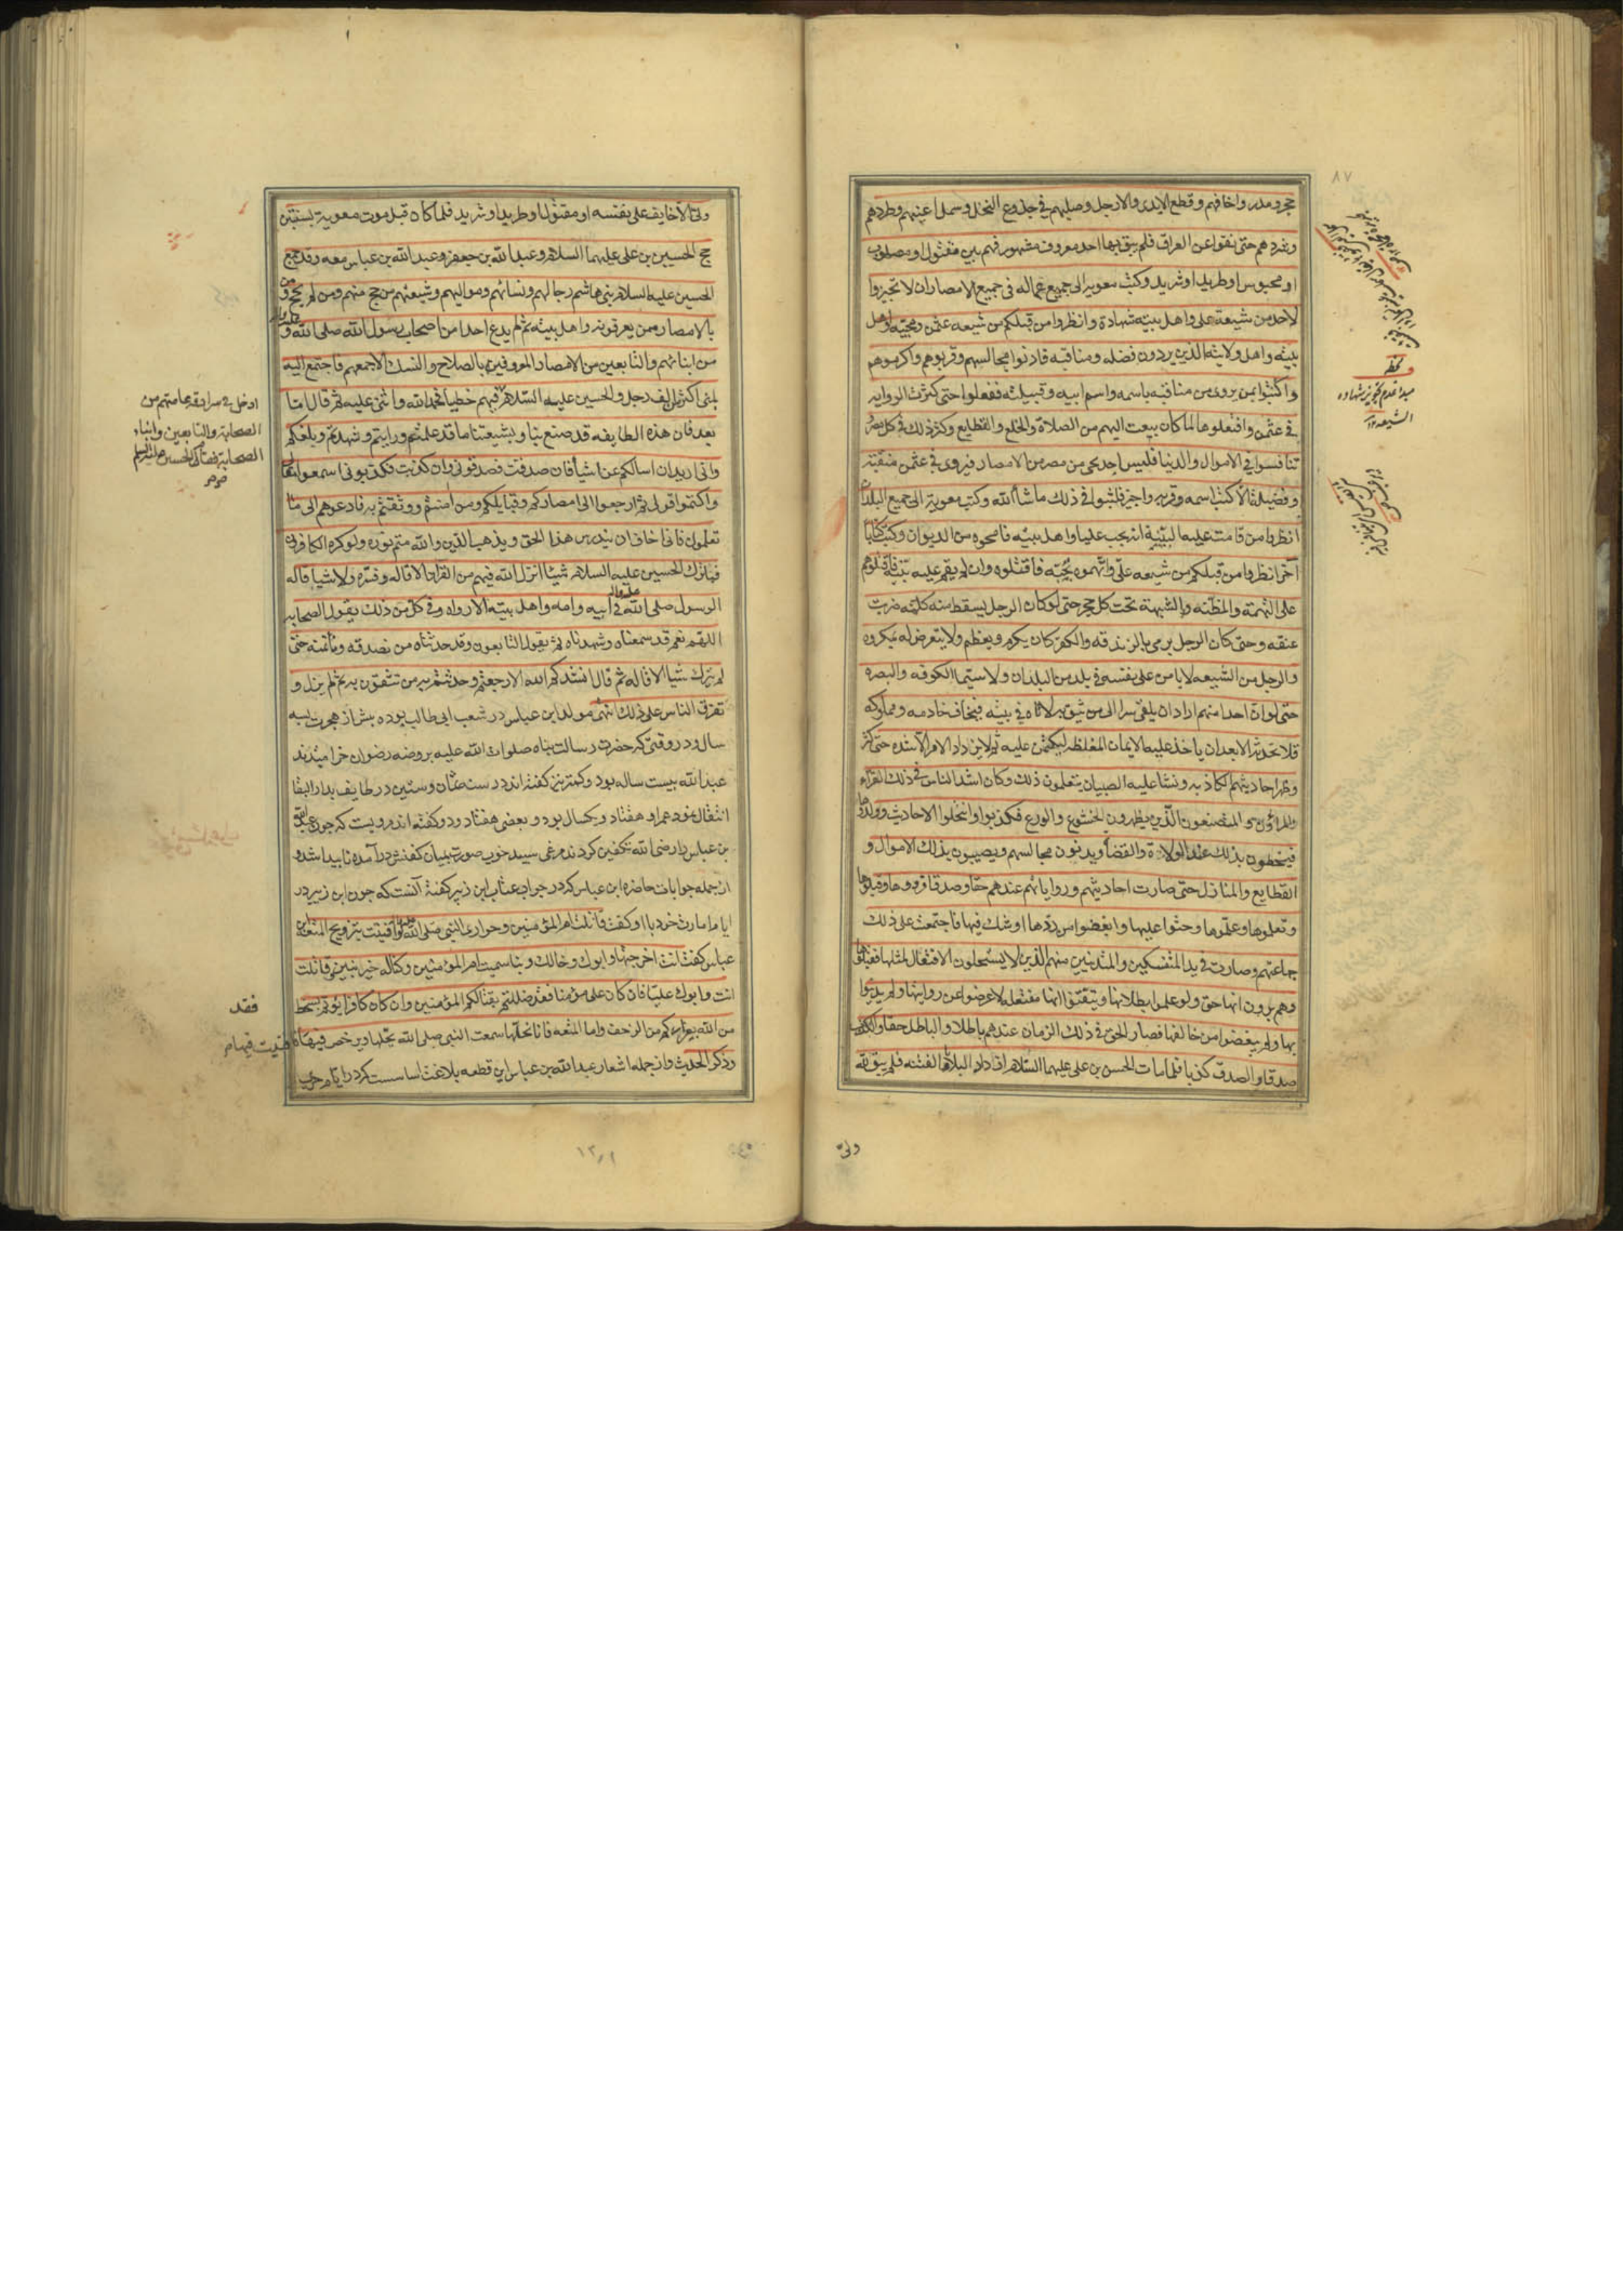 ٨٧
حجر ومدر واخافهم وقطع الايدى والارجل وصلبهم في جذوع النخل وسمل اعينهم وطردهم
وشردهم حتى نفوا عن العراق فلم يبق بها احد معروف مشهور فهم بين مقتول ومصلوب
او محبوس او طريد او شريد وكتب معوية الى جميع عماله فى جميع الامصار ان لا تجيزوا
لاحد من شيعة على واهل بيته شهادة وانظروا من قبلكم من شيعه عثمن ومحبيه واهل
بيته واهل ولايته الذين يردون فضله ومناقبه فادنوا مجالسهم وقربوهم واكرموهم
واكتبوا بمن يروى من مناقبه باسمه واسم ابيه وقبيلته ففعلوا حتى كثرت الروايه
في عثمن وافتعلوها لما كان يبعث اليهم من الصلاة والخلع والقطايع وكثر ذلك في كل مصر
تنافسوا في الاموال والدنيا فليس احد يجى من مصر من الامصار فيروى في عثمن منقبة
وفضيلة الا كتب اسمه وقرب واجيز فلبثوا في ذلك ما شاء الله وكتب معوية الى جميع البلدان
انظروا من قامت عليه البينة انه يحب عليا واهل بيته فامحوه من الديوان وكتب كتابا
آخر انظروا من قبلكم من شيعه على واتهموه بحبه فاقتلوه وان لم يقم عليه بينة فاقتلوهم
على التهمة والظنه والشبهة تحت كل حجر حتى لو كان الرجل يسقط منه كلمه ضربت
عنقه وحتى كان الرجل يرمى بالزندقه والكفر كان يكرم ويعظم ولا يتعرض له بمكروه
والرجل من الشيعه لا يامن على نفسه فى بلد من البلدان ولا سيما الكوفه والبصره
حتى لو ان احدا منهم اراد ان يلقى سرا الى من يثق به لاتاه في بيته فيخاف خادمه ومملوكه
فلا يحدثه الا بعد ان ياخذ عليه الايمان المغلظه ليكتمن عليه ثم لا يزداد الامر الا شده حتى كثر
وظهر احاديثهم الكاذبه ونشا عليه الصبيان يتعلمون ذلك وكان اشد الناس فى ذلك القراء
المراؤن المتصنعون الذين يظهرون الخشوع والورع فكذبوا وانتحلوا الاحاديث وولدوها
فيخطون بذلك عند الولاة والقضاة ويدنون مجالسهم ويصيبون بذلك الاموال و
القطايع والمنازل حتى صارت احاديثهم ورواياتهم عندهم حقا وصدقا فرووها وقبلوها
وتعلموها وعلموها وحثوا عليها وابغضوا من ردها او شك فيها فاجتمعت على ذلك
جماعتهم وصارت في يد المتنسكين والمتدينين منهم الذين لا يستحلون الافتعال لمثلها فقبلوها
وهم يرون انها حق ولو علموا بطلانها وتيقنوا انها مفتعله لاعرضوا عن روايتها ولم يدينوا
بها ولم يبغضوا من خالفها فصار الحق في ذلك الزمان عندهم باطلا والباطل حقا والكذب
صدقا والصدق كذبا فلما مات الحسن بن على عليهما السلام ازداد البلاء والفتنه فلم يبق لله
ولى
ولى الا خايف على نفسه او مقتول او طريد او شريد فلما كان قبل موت معوية بسنتين
حج الحسين بن على عليهما السلام وعبد الله بن جعفر وعبد الله بن عباس معه وقد جمع
الحسين عليه السلام بنى هاشم رجالهم ونسائهم ومواليهم وشيعتهم من حج منهم ومن لم يحج ومن
بالامصار ممن يعرفونه واهل بيته ثم لم يدع احدا من اصحاب رسول الله صلى الله و
من ابنائهم والتابعين من الامصار المعروفين بالصلاح والنسك الا جمعهم فاجتمع اليه
بمنى اكثر من الف رجل والحسين عليه السلام فيهم خطيبا فحمد الله واثنى عليه ثم قال اما
بعد فان هذه الطايفه قد صنع بنا وبشيعتنا ما قد علمتم ورايتم وشهدتم وبلغكم
وانى اريد ان اسالكم عن اشياء فان صدقت فصدقونى وان كذبت فكذبونى اسمعوا مقالتى
واكتموا قولى ثم ارجعوا الى امصاركم وقبايلكم ومن امنتم ووثقتم به فادعوهم الى ما
تعلمون فانى اخاف ان يندرس هذا الحق ويذهب الدين والله متم نوره ولو كره الكافرون
فما ترك الحسين عليه السلام شيئا انزل الله فيهم من القرآن الا قاله وفسره ولا شيا قاله
الرسول صلى الله في ابيه وامه واهل بيته الا رواه وفى كل من ذلك يقول الصحابه
اللهم نعم قد سمعناه وشهدناه ثم يقول التابعون وقد حدثناه من نصدقه وناتمنه حتى
لم يترك شيا الا قاله ثم قال انشدكم الله الا رجعتم وحدثتم به من تثقون به ثم نزل و
تفرق الناس على ذلك انتهى مولد ابن عباس در شعب ابى طالب بوده پيش از هجرت بسه
سال و در وقتى كه حضرت رسالت پناه صلوات الله عليه بروضه رضوان خراميدند
عبد الله بيست ساله بود وكمتر نيز گفته اند و در سنه ثمان وستين در طايف بدار البقا
انتقال نمود عمر او هفتاد ويكسال بود و بعضى هفتاد ودو گفته اند مرويست كه چون عبد الله
بن عباس را رضى الله تكفين كردند مرغى سپيد خوب صورت بميان كفنش درآمده ناپيدا شد و
از جمله جوابات حاضره ابن عباس كه در جواب عتاب ابن زبير گفته آنست كه چون ابن زبير در
ايام امارت خود با او گفت قاتلت ام المؤمنين وحوارى النبى صلى الله وافتيت بتزويج المتعه ابن
عباس گفت انت اخرجتها وابوك وخالك وبنا سميت ام المؤمنين وكنا له خير بنين وقاتلت
انت وابوك عليا فان كان على مؤمنا فقد ضللتم بقتالكم المؤمنين وان كان كافرا بؤتم بسخط
من الله بفراركم من الزحف واما المتعه فانا نحلها سمعت النبى صلى الله يحلها ويرخص فيها فافتيت فيها
وذكر الحديث واز جمله اشعار عبد الله بن عباس اين قطعه بلاغت اساسست كه در ايام حرب
ادخل فى سرادقه عامتهم من
الصحابة والتابعين وابناء
الصحابة فقال الحسين عليه السلم
فقد
مبدا عدم تجويز شهاده
الشيعه